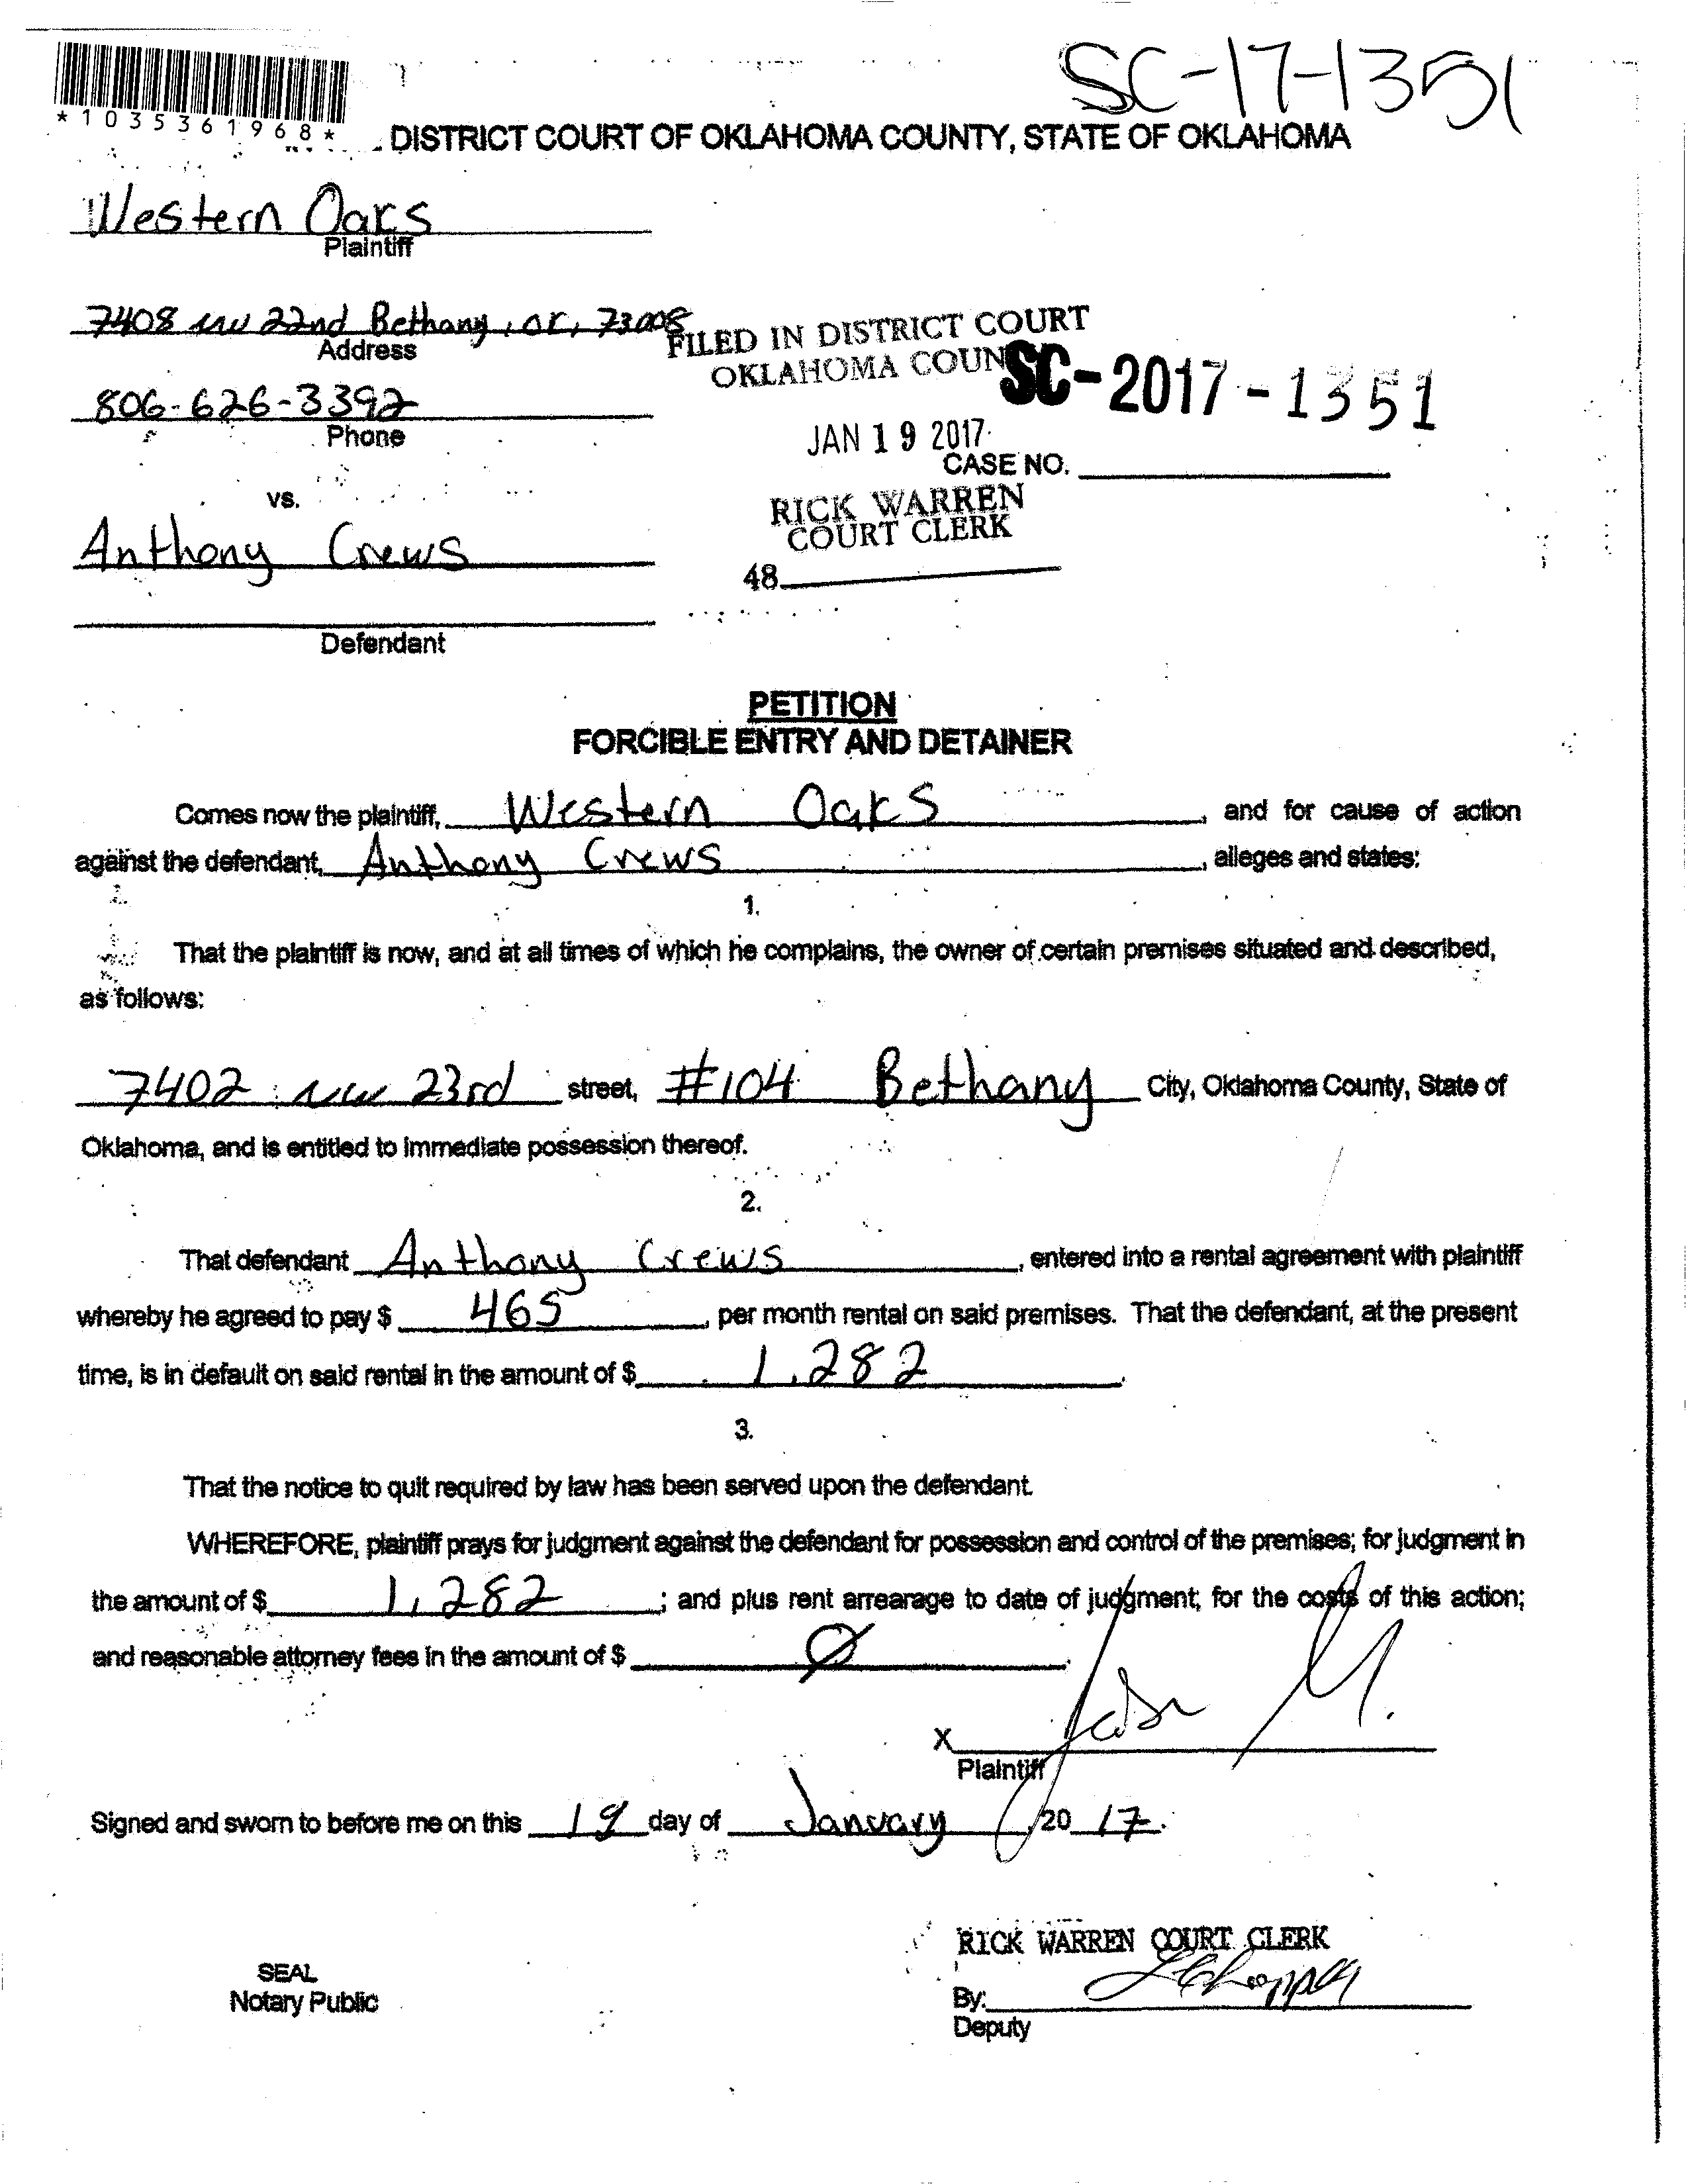 SC-17-1351
*1035361968*
DISTRICT COURT OF OKLAHOMA COUNTY, STATE OF OKLAHOMA
Western Oaks
Plaintiff
7408 NW 22nd Bethany, OK, 73008
Address
FILED IN DISTRICT COURT
OKLAHOMA COUN
SC-2017-1351
806-626-3392
Phone
JAN 19 2017
CASE NO.
vs.
RICK WARREN
COURT CLERK
Anthony Crews
48
Defendant
PETITION
FORCIBLE ENTRY AND DETAINER
Comes now the plaintiff, Western Oaks, and for cause of action
against the defendant, Anthony Crews, alleges and states:
1.
That the plaintiff is now, and at all times of which he complains, the owner of certain premises situated and described,
as follows:
7402 NW 23rd street, #104 Bethany City, Oklahoma County, State of
Oklahoma, and is entitled to immediate possession thereof.
2.
That defendant Anthony Crews, entered into a rental agreement with plaintiff
whereby he agreed to pay $ 465, per month rental on said premises. That the defendant, at the present
time, is in default on said rental in the amount of $ 1,282.
3.
That the notice to quit required by law has been served upon the defendant.
WHEREFORE, plaintiff prays for judgment against the defendant for possession and control of the premises; for judgment in
the amount of $ 1,282; and plus rent arrearage to date of judgment; for the costs of this action;
and reasonable attorney fees in the amount of $ Ø.
X
Plaintiff
Signed and sworn to before me on this 19 day of January, 20 17.
RICK WARREN COURT CLERK
SEAL
Notary Public
By:
Deputy